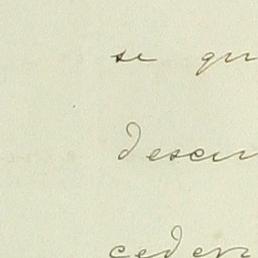 se qu
descu
ceder